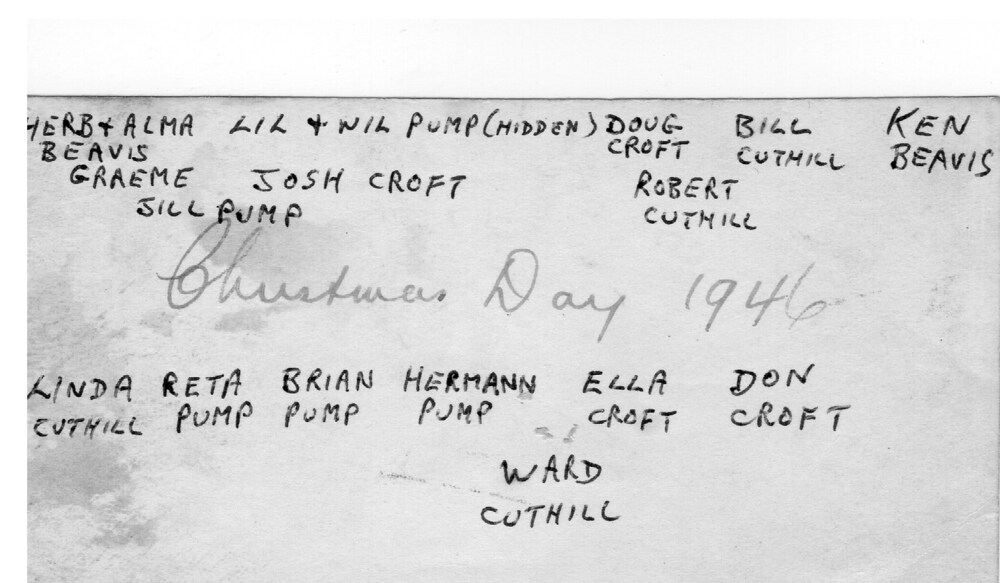 HERB & ALMA LIL & NIL PUMP (HIDDEN) DOUG BILL KEN
BEAVIS CROFT CUTHILL BEAVIS
GRAEME JOSH CROFT ROBERT
JILL PUMP CUTHILL
Christmas Day 1946
LINDA RETA BRIAN HERMANN ELLA DON
CUTHILL PUMP PUMP PUMP CROFT CROFT
WARD
CUTHILL